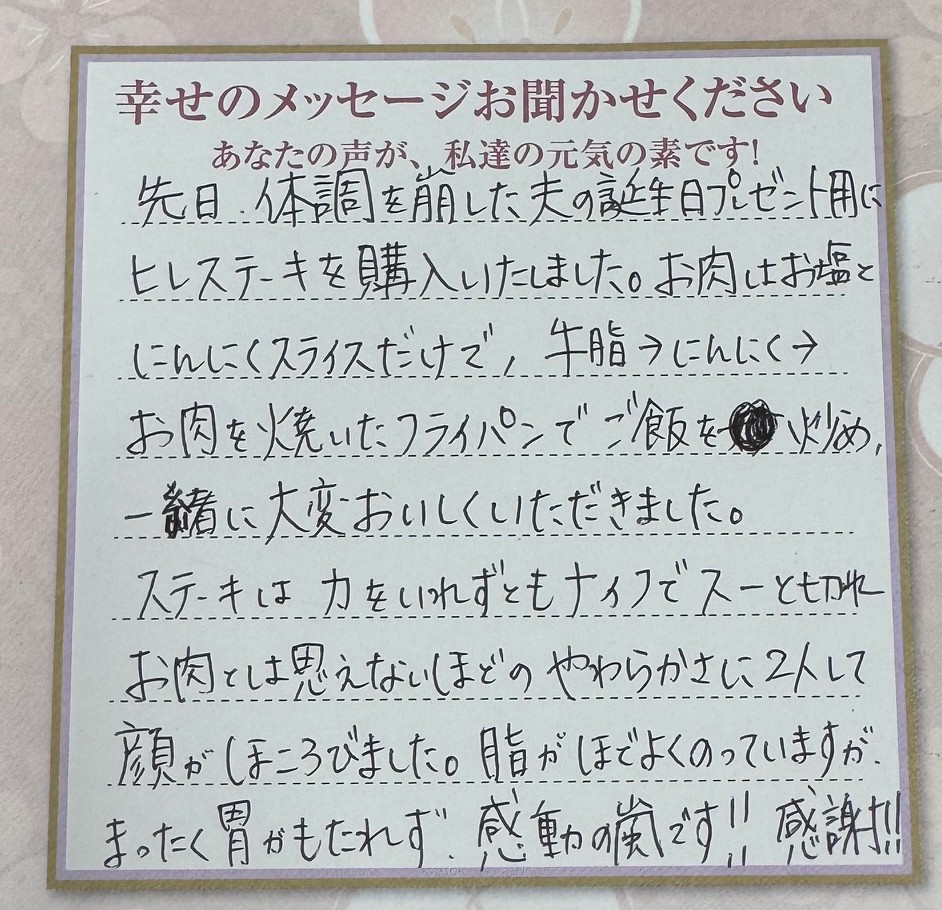 幸せのメッセージお聞かせください
あなたの声が、私達の元気の素です!
先日、体調を崩した夫の誕生日プレゼント用に
ヒレステーキを購入いたしました。お肉はお塩と
にんにくスライスだけで、牛脂→にんにく→
お肉を焼いたフライパンでご飯を炒め、
一緒に大変おいしくいただきました。
ステーキは力をいれずともナイフでスーと切れ
お肉とは思えないほどのやわらかさに2人して
顔がほころびました。脂がほどよくのっていますが、
まったく胃がもたれず、感動の嵐です!!感謝!!